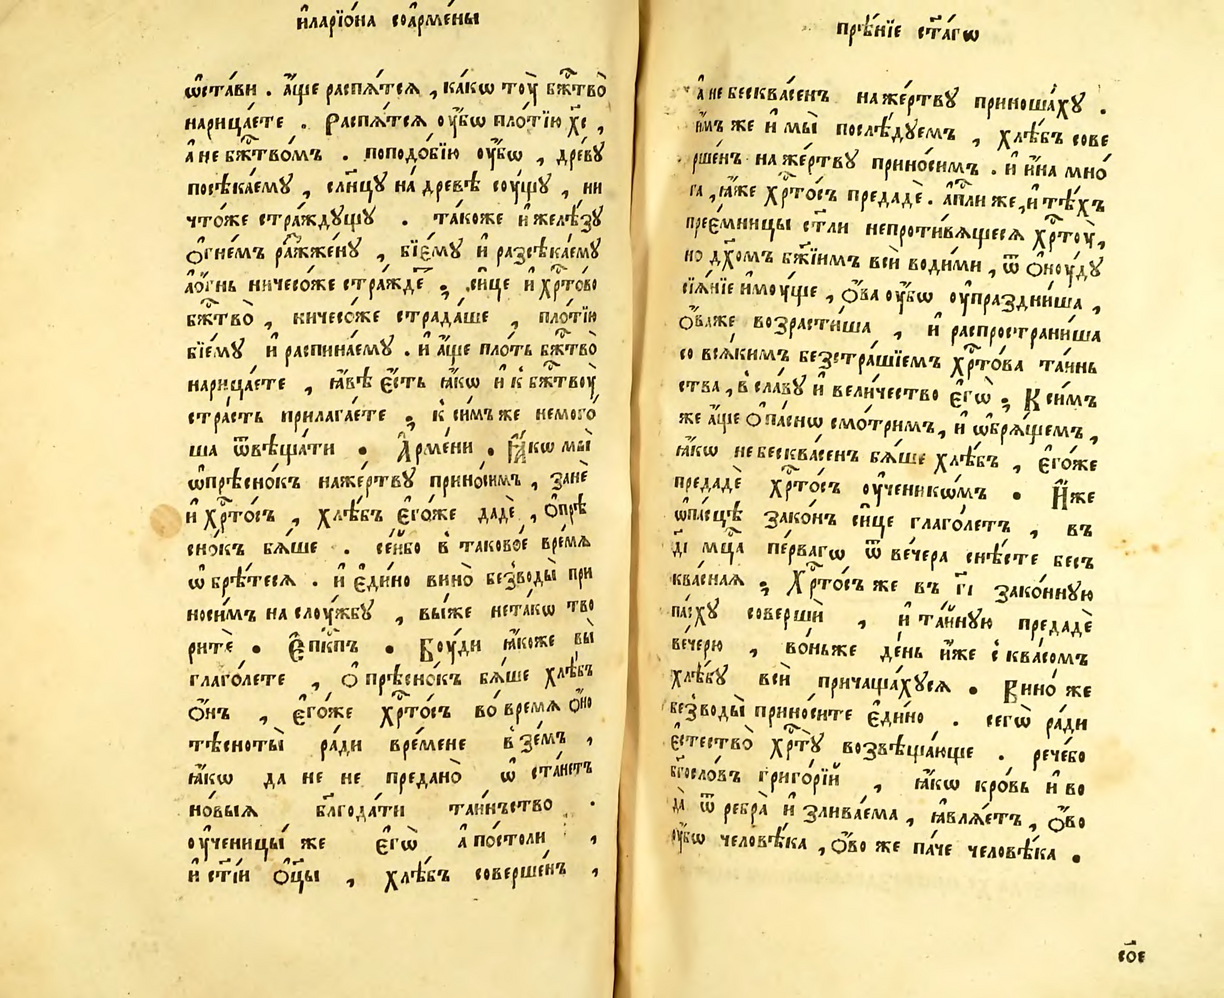 и҆ларїо́на соарме́ны
ѡ҆ста́ви . а҆́ще распѧ́тсѧ , ка́кѡ тоу̀ бж҃тво̀
нарица́ете . Распѧ́тсѧ оу҆́бѡ пло́тїю хс҃ ,
а҆ не бж҃тво́мъ . поподо́бїю оу҆́бѡ , дре́вꙋ
посѣка́емꙋ , сл҃нцꙋ на́ древѣ соу́щꙋ , ни
что́же стра́ждꙋщꙋ . та́коже и҆ желѣ́зꙋ
ѻ҆гне́мъ ражже́нꙋ , бїе́мꙋ и҆ разсѣка́емꙋ
а҆ѻ҆́гнь ничесо́же стра́жде , си́це и҆ хр҃то́во
бж҃тво̀ , ничесо́же страда́ше , пло́тїю
бїе́мꙋ и҆ распина́емꙋ . и҆ а҆́ще плоть бж҃тво
нарица́ете , ꙗ҆́вѣ є҆́сть ꙗ҆́кѡ и҆ к бж҃твоу̀
стра́сть прилага́ете , к си́мъ же немого́
ша ѿвѣща́ти . А҆рме́ни . Ꙗ҆́кѡ мы̀
ѡ҆прѣсно́къ нажéртвꙋ прино́симъ , занѐ
и҆ хр҃то́съ , хлѣ́бъ є҆го́же дадѐ , ѻ҆прѣ
сно́къ бѧ́ше . се́ибо в таково́е вре́мѧ
ѡ҆брѣ́тесѧ . и҆ є҆ди́но вино̀ безводы̀ при
но́симъ на слоу́жбꙋ , вы́же нета́кѡ тво
ритѐ . Є҆пк҃пъ . Боу́ди ꙗ҆́коже вы̀
глаго́лете , ѻ҆прѣсно́къ бѧ́ше хлѣ́бъ
ѻ҆́нъ , є҆го́же хр҃то́съ во вре́мѧ ѻ҆́но
тѣсноты̀ ра́ди вре́мене взе́мъ ,
ꙗ҆́кѡ да не не предано̀ ѡ҆ста́нетъ
но́выѧ бл҃года́ти та́иньство .
оу҆ченицы́ же є҆гѡ̀ а҆по́столи ,
и҆ ст҃і́и ѻ҆ц҃ы , хлѣ́бъ соверше́нъ ,
прѣ́нїе ст҃а́гѡ
а҆ не бесква́сенъ на же́ртвꙋ приноша́хꙋ .
и҆́мъ же и҆ мы̀ послѣ́дꙋемъ , хлѣ́бъ сове
рше́нъ на же́ртвꙋ прино́симъ . и҆ и҆́на мно́
га , ꙗ҆́же хр҃то́съ предадѐ . а҆п҃ли же , и҆ тѣ́хъ
прее́мницы ст҃ли непроти́вѧщесѧ хр҃тоу̀ ,
но дх҃омъ бж҃їимъ всѝ води́ми , ѿ ѻ҆ноу́дꙋ
сїѧ́нїе и҆моу́ще , ѻ҆́ва оу҆́бѡ оу҆праздни́ша ,
ѻ҆́важе возрасти́ша , и҆ распространи́ша
со всѧ́кимъ безстра́шїемъ хр҃то́ва та́инь
ства , в сла́вꙋ и҆ вели́чество є҆гѡ̀ , К си́мъ
же а҆́ще ѻ҆па́снѡ смо́тримъ , и҆ ѡ҆брѧ́щемъ ,
ꙗ҆́кѡ небесква́сенъ бѧ́ше хлѣ́бъ , є҆го́же
предадѐ хр҃то́съ оу҆ченикѡ́мъ . И҆́же
ѡ҆па́сцѣ зако́нъ си́це глаго́летъ , въ
д҃і мц҃а пе́рвагѡ ѿ ве́чера снѣ́сте бесъ
ква́снаѧ , Хр҃то́съ же въ г҃і зако́нную
па́схꙋ совершѝ , и҆ та́иную предадѐ
вече́рю , во́ньже де́нь и҆́же с ква́сомъ
хлѣ́бꙋ всѝ причаща́хꙋсѧ . Вино́ же
безводы̀ прино́сите є҆ди́но . сегѡ̀ ра́ди
є҆стество̀ хр҃тꙋ̀ возвѣща́юще . рече́бо
бг҃осло́въ григо́рїй , ꙗ҆́кѡ кро́вь и҆ во
да̀ ѿ ребра̀ и҆злива́ема , ꙗ҆влѧ́етъ , ѻ҆́во
оу҆́бѡ человѣ́ка , ѻ҆́во же па́че человѣ́ка .
со҃є